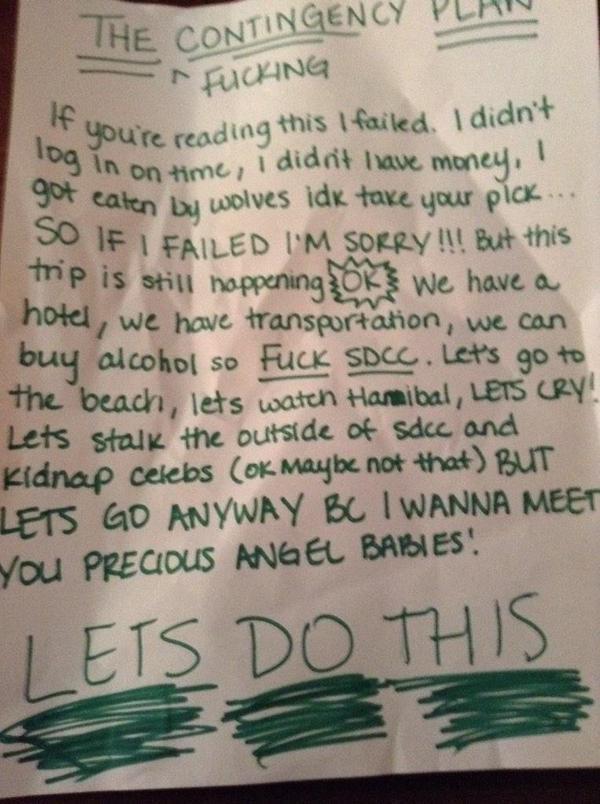 THE CONTINGENCY PLAN
^ FUCKING
If you're reading this I failed. I didn't
log in on time, I didn't have money, I
got eaten by wolves idk take your pick...
SO IF I FAILED I'M SORRY!!! But this
trip is still happening OK We have a
hotel, we have transportation, we can
buy alcohol so FUCK SDCC. Let's go to
the beach, lets watch Hannibal, LETS CRY!
Lets stalk the outside of sdcc and
kidnap celebs (OK Maybe not that) BUT
LETS GO ANYWAY BC I WANNA MEET
YOU PRECIOUS ANGEL BABIES!
LETS DO THIS